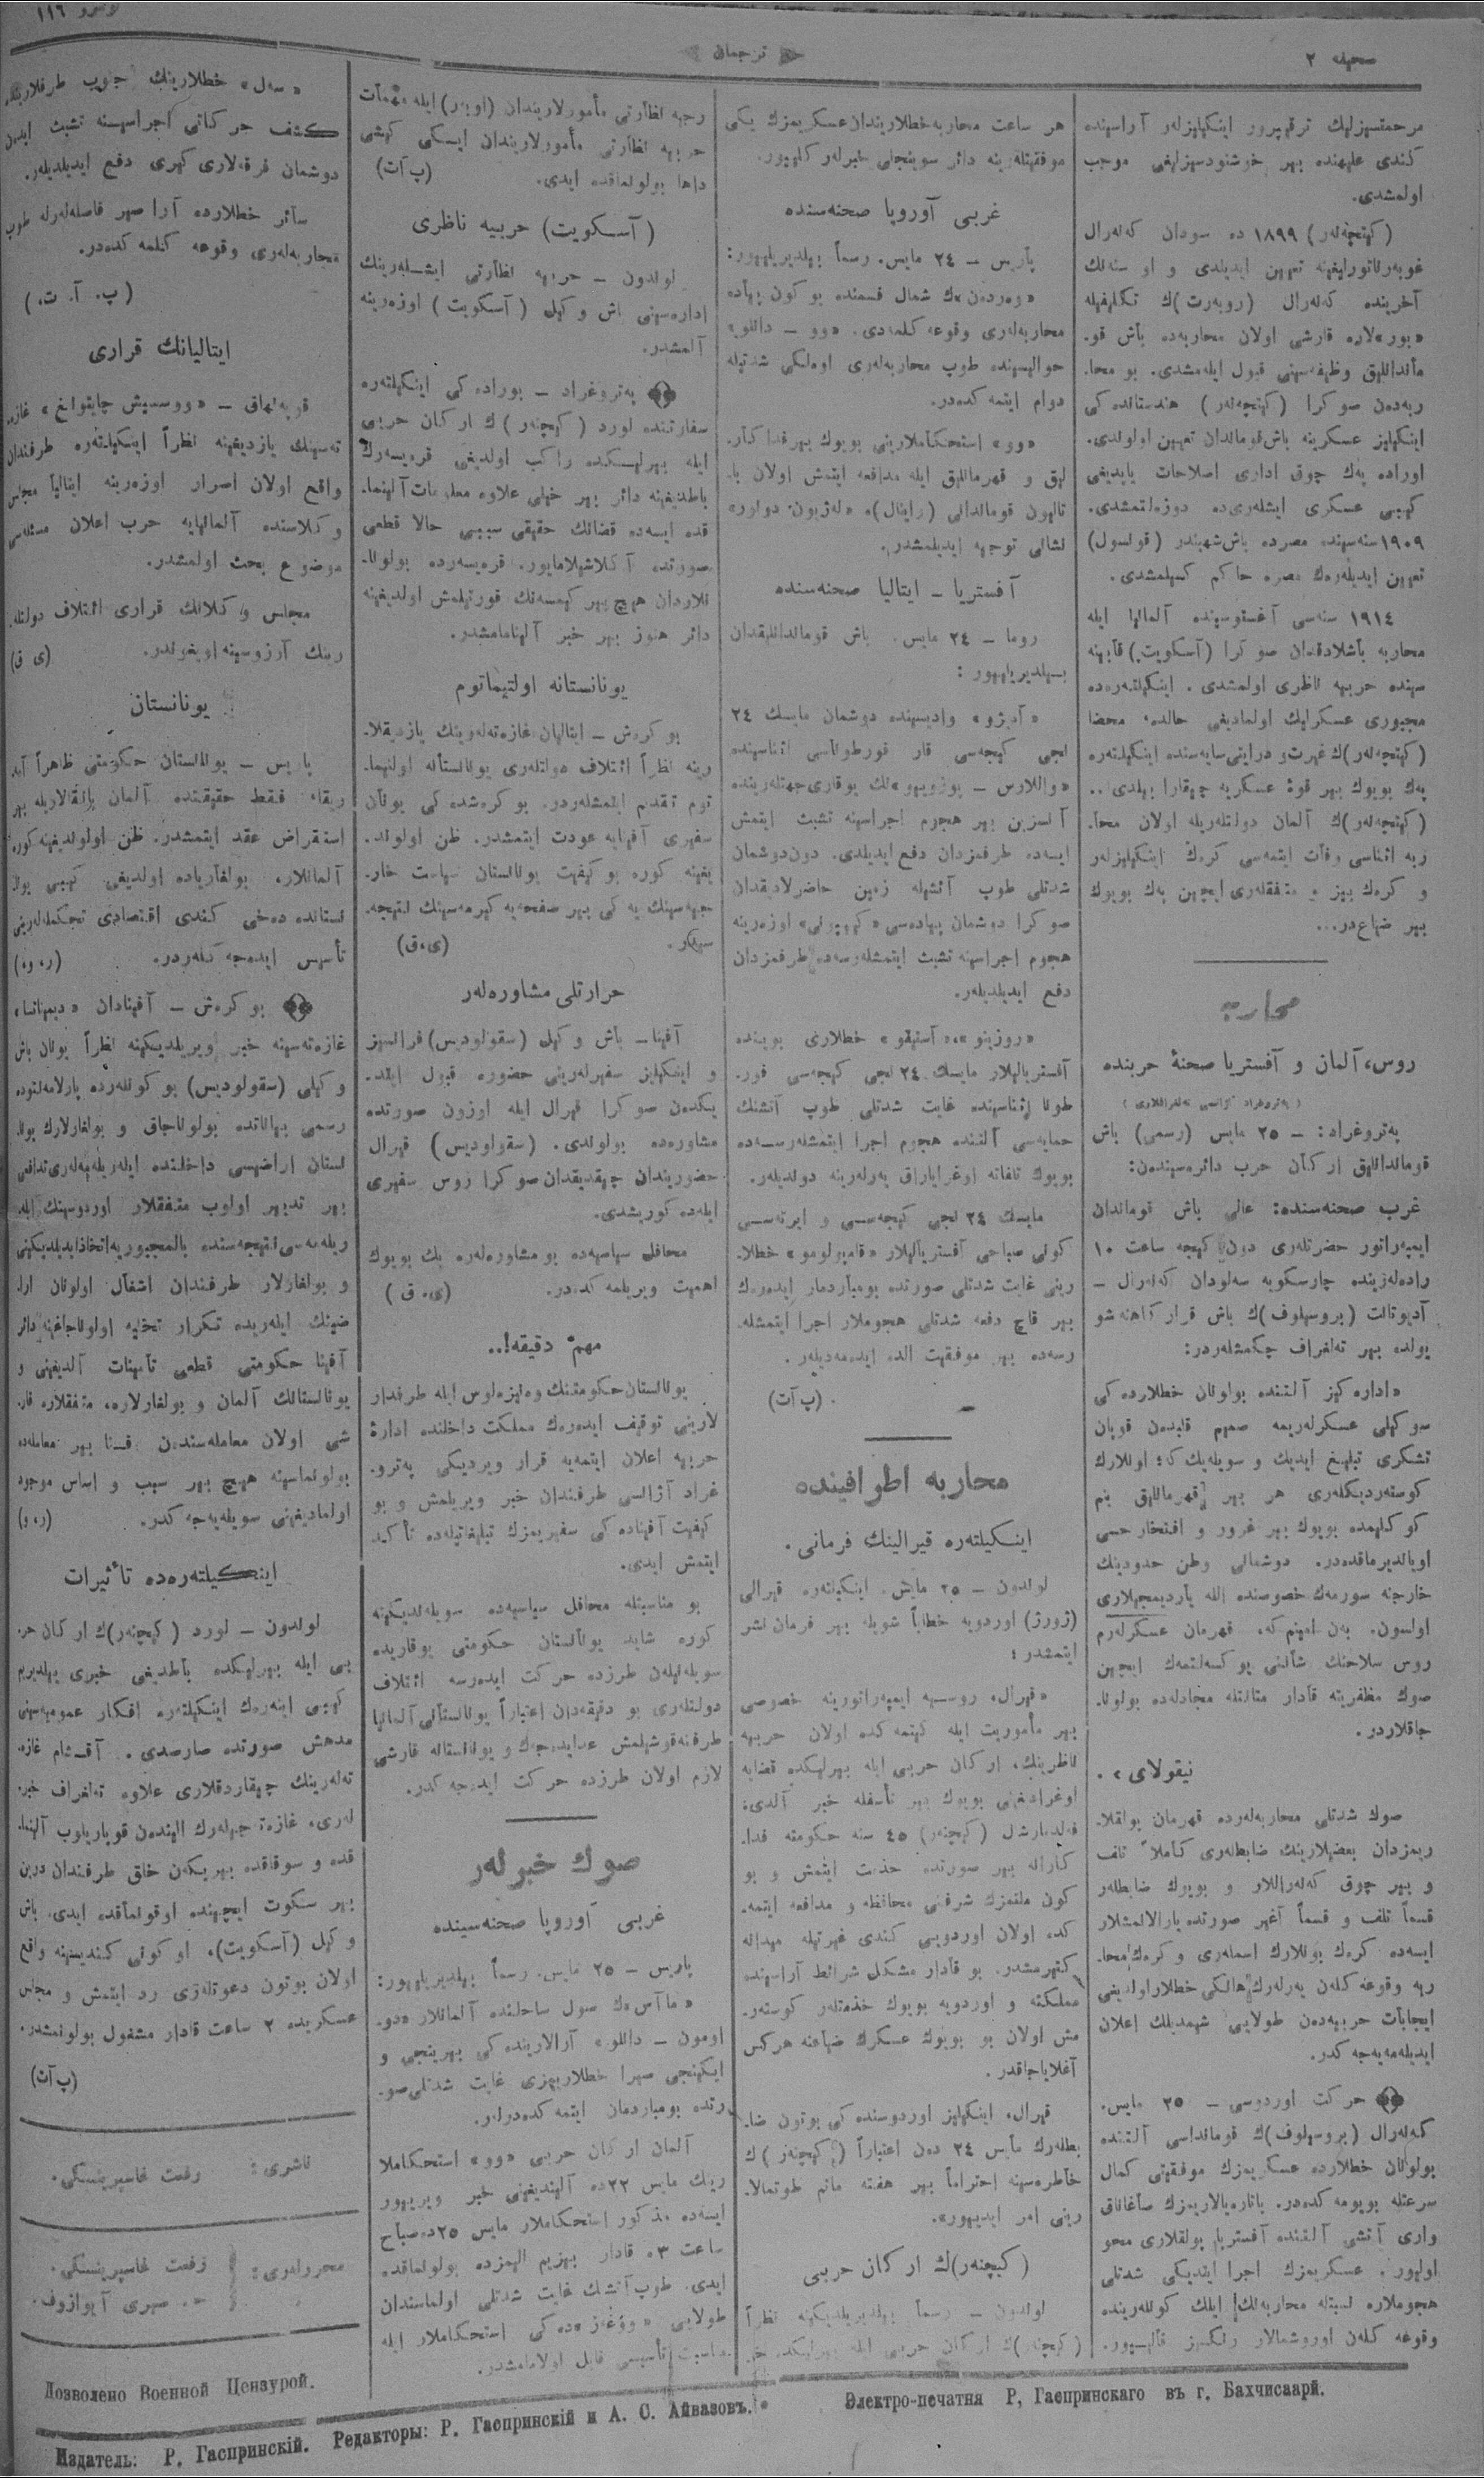 صحیفه ٢
ترجمان
نومرو ١١٦
مرحمتسزلیك ترقیپرور اینكیلیزلەر آراسینده
كندی علیهنده بیر خوشنودسزلیغی موجب
اولمشدی.
(كیتچەنەر) ١٨٩٩ ده سودان كەنەرال
غوبەرناتورلیغینه تعیین ایدیلدی و او سنەنك
آخرینده كەنەرال (روبەرت)ك تكلیفیله
«بور»لاره قارشی اولان محاربەده باش قو-
مانداانلیق وظیفەسینی قبول ایلەمشدی. بو محا-
ربەدن صوكرا (كیتچەنەر) هندستاندەكی
اینكیلیز عسكرینه باش قوماندان تعیین اولوندی.
اوراده پەك چوق اداری اصلاحات یاپدیغی
كیبی عسكری ایشلەری ده دوزەلتمشدی.
١٩٠٩ سنەسینده مصرده باش شهبندر (قونسول)
تعیین ایدیلەرەك مصره حاكم كسیلمشدی.
١٩١٤ سنەسی آغستوسینده آلمانیا ایله
محاربه باشلادقدان صوكرا (آسكویت) قابینه
سینده حربیه ناظری اولمشدی. اینكیلتەرەده
مجبوری عسكرلیك اولمادیغی حالده، محضا
(كیتچەنەر)ك غیرت و درایتی سایەسنده اینكیلتەره
پەك بویوك بیر قوۀ عسكریه چیقارا بیلدی..
(كیتچەنەر)ك آلمان دولتلەریله اولان محا-
ربه اثناسی وفات ایتمەسی كرەك اینكیلیزلەر
و كرەك بیز و متفقلەری ایچین پەك بویوك
بیر ضیاع در...
محاربه
روس، آلمان و آفستریا صحنۀ حربنده
(پەتروغراد آژانسی تەلغرافلاری)
پەتروغراد: – ٢٥ مایس (رسمی) باش
قومانداانلیق اركان حرب دائرەسیندەن:
غرب صحنەسنده: عالی باش قوماندان
ایمپەراتور حضرتلەری دون كیجه ساعت ١٠
رادەلەرینده چارسكویه سەلودان كەنەرال –
آدیوتانت (بروسیلوف)ك باش قرارگاهنه شو
یولده بیر تەلغراف چكمشلەردر:
«ادارەكیز آلتنده بولونان خطلاردەكی
سوكیلی عسكرلەریمه صمیم قلبدەن قوپان
تشكری تبلیغ ایدیك و سویلەیك كه: اونلارك
كوستەردیكلەری هر بیر قهرمانلیق بنم
كوكلیمده بویوك بیر غرور و افتخار حسی
اویاندیرماقدەدر. دوشمانی وطن حدودینك
خارجنه سورمەك خصوصنده الله یاردیمجیلاری
اولسون. بەن امینم كه، قهرمان عسكرلەرم
روس سلاحنك شأننی یوكسەلتمەك ایچین
صوك مظفریته قادار متانتله مجادلەده بولونا-
جاقلاردر.
نیقولای».
صوك شدتلی محاربەلەرده قهرمان پولقلا-
ریمزدان بعضیلارینك ضابطلەری كاملاً تلف
و بیر چوق كەنەراللار و بویوك ضابطلەر
قسماً تلف و قسماً آغیر صورتده یارالانمشلار
ایسەده كرەك بونلارك اسملەری و كرەك محا-
ربه وقوعه كلەن یەرلەرك هانكی خطلار اولدیغی
ایجابات حربیەدەن طولایی شیمدیلك اعلان
ایدیلەمەیەجەكدر.
حركت اوردوسی – ٢٥ مایس.
كەنەرال (بروسیلوف)ك قومانداسی آلتنده
بولونان خطلارده عسكریمزك موفقیتی كمال
سرعتله بویومەكدەدر. باتارەیالاریمزك صاغاناق
واری آتشی آلتنده آفستریا پولقلاری محو
اولیور. عسكریمزك اجرا ایتدیكی شدتلی
هجوملاره نسبتله محاربەنك ایلك كونلەرینده
وقوعه كلەن اوروشمالار رنكسز قالییور.
هر ساعت محاربه خطلاریندان عسكریمزك یكی
موفقیتلەرینه دائر سوینجلی خبرلەر كلیور.
غربی آوروپا صحنەسنده
پاریس – ٢٤ مایس. رسماً بیلدیریلیور:
«وەردەن»ك شمال قسمنده بو كون پیاده
محاربەلەری وقوعه كلمەدی. «وو – دانلوپ»
حوالیسینده طوپ محاربەلەری اوەلكی شدتیله
دوام ایتمەكدەدر.
«وو» استحكاملارینی بویوك بیر فداكار-
لیق و قهرمانلیق ایله مدافعه ایتمش اولان با-
تالیون قوماندانی (راینال)ه «لەژیون دونور»
نشانی توجیه ایدیلمشدر.
آفستریا – ایتالیا صحنەسنده
روما – ٢٤ مایس. باش قومانداانلیقدان
بیلدیریلیور:
«آدیژو» وادیسینده دوشمان مایسك ٢٤
نجی كیجەسی قار فورطوناسی اثناسینده
«واللارس – پوزویبو»نك یوقاری جهتلەرینده
آنسزین بیر هجوم اجراسینه تشبث ایتمش
ایسەده طرفمزدان دفع ایدیلدی. دون دوشمان
شدتلی طوپ آتشیله زمین حاضرلادیقدان
صوكرا دوشمان پیادەسی اوزەرینه
هجوم اجراسینه تشبث ایتمشلەرسەده طرفمزدان
دفع ایدیلدیلەر.
«پوزینو»، «آستیقو» خطلاری بوینده
آفستریالیلار مایسك ٢٤ نجی كیجەسی فور-
طونا اثناسینده غایت شدتلی طوپ آتشنك
حمایەسی آلتنده هجوم اجرا ایتمشلەرسەده
بویوك تلفاته اوغرایاراق یەرلەرینه دوندیلەر.
مایسك ٢٤ نجی كیجەسی و ایرتەسی
كونی صباحی آفستریالیلار «قامپولومو» خطلا-
رینی غایت شدتلی صورتده بومباردمار ایدەرەك
بیر قاچ دفعه شدتلی هجوملار اجرا ایتمشلە-
رسەده بیر موفقیت الده ایدەمەدیلەر.
(پ آت)
محاربه اطرافینده
اینكیلتەره قیرالینك فرمانی.
لوندون – ٢٥ مایس. اینكیلتەره قیرالی
(ژورژ) اوردویه خطاباً شویله بیر فرمان نشر
ایتمشدر:
«قیرال، روسیه ایمپەراتورینه خصوصی
بیر مأموریت ایله كیتمەكده اولان حربیه
ناظرینك، اركان حربی ایله بیرلیكده قضایه
اوغرادیغینی بویوك بیر تأسفله خبر آلدی.
فەلدمارشل (كیچنەر) ٤٥ سنه حكومته فدا-
كارانه بیر صورتده خدمت ایتمش و بو
كون ملتمزك شرفنی محافظه و مدافعه ایتمە-
كده اولان اوردویی كندی غیرتیله میدانه
كتیرمشدر. بو قادار مشكل شرائط آراسینده
مملكته و اوردویه بویوك خذمتلەر كوستەر-
مش اولان بو بویوك عسكرك ضیاعنه هركس
آغلایاجاقدر.
قیرال، اینكیلیز اوردوسندەكی بوتون ضا-
بطلەرك مایس ٢٤ دەن اعتباراً (كیچنەر)ك
خاطرەسینه احتراماً بیر هفته ماتم طوتمالا-
رینی امر ایدییور».
(كیچنەر)ك اركان حربی
لوندون – رسماً بیلدیریلدیكینه نظراً
(كیچنەر)ك اركان حربی ایله بیرلیكده خا-
رجیه نظارتی مأمورلاریندان (اوبەر) ایله مهمات
حربیه نظارتی مأمورلاریندان ایكی كیشی
داها بولونماقده ایدی. (پ آت)
(آسكویت) حربیه ناظری
لوندون – حربیه نظارتی ایشلەرینك
ادارەسینی باش وكیل (آسكویت) اوزەرینه
آلمشدر.
پەتروغراد – بورادەكی اینكیلتەره
سفارتنده لورد (كیچنەر)ك اركان حربی
ایله بیرلیكده راكب اولدیغی قرەیسەرك
باطدیغینه دائر بیر خیلی علاوه معلومات آلینما-
قده ایسەده قضانك حقیقی سببی حالا قطعی
صورتده آكلاشیلامایور. قرەیسەرده بولونا-
نلاردان هیچ بیر كیمسەنك قورتیلمش اولدیغینه
دائر هنوز بیر خبر آلینامامشدر.
یونانستانه اولتیماتوم
بوكرەش – ایتالیان غازەتەلەرینك یازدیقلا-
رینه نظراً ائتلاف دولتلەری یونانستانه اولتیما-
توم تقدیم ایتمشلەردر. بوكرەشدەكی یونان
سفیری آفینایه عودت ایتمشدر. ظن اولوند-
یغینه كوره بو كیفیت یونانستان سیاست خار-
جیەسینك یەكی بیر صفحەیه كیرمەسینك نتیجە-
سیدر. (ی،ق)
حرارتلی مشاورەلەر
آفینا – باش وكیل (سقولودیس) فرانسیز
و اینكیلیز سفیرلەرینی حضوره قبول ایتد-
یكدەن صوكرا قیرال ایله اوزون صورتده
مشاورەده بولوندی. (سقولودیس) قیرال
حضوریندان چیقدیقدان صوكرا روس سفیری
ایلەده كوریشدی.
محافل سیاسیەده بو مشاورەلەره پك بویوك
اهمیت ویریلمەكدەدر. (ی، ق)
مهمّ دقیقه!..
یونانستان حكومتنك وەنیزەلوس ایله طرفدار
لارینی توقیف ایدەرەك مملكت داخلنده ادارۀ
حربیه اعلان ایتمەیه قرار ویردیكی پەترو-
غراد آژانسی طرفندان خبر ویریلمش و بو
كیفیت آفینادەكی سفیریمزك تبلیغاتیلەده تأكید
ایتمش ایدی.
بو مناسبتله محافل سیاسیەده سویلەندیكینه
كوره شاید یونانستان حكومتی یوقاریده
سویلەنیلەن طرزده حركت ایدەرسه ائتلاف
دولتلەری بو دقیقەدن اعتباراً یونانستانی آلمانیا
طرفنه قوشیلمش عد ایدەجەك و یونانستانه قارشی
لازم اولان طرزده حركت ایدەجەكدر.
صوك خبرلەر
غربی آوروپا صحنەسینده
پاریس – ٢٥ مایس. رسماً بیلدیریلیور:
«مااس»ك سول ساحلنده آلمانلار «دو-
اومون – دانلوپ» آرالاریندەكی بیرینجی و
ایكینجی صیرا خطلاریمزی غایت شدتلی صو-
رتده بومباردمان ایتمەكدەدرلەر.
آلمان اركان حربی «وو» استحكاملا
رینك مایس ٢٢ ده آلیندیغینی خبر ویرییور
ایسەده مذكور استحكاملار مایس ٢٥ ده صباح
ساعت ٣ه قادار بیزیم الیمزده بولونماقده
ایدی. طوپ آتشنك غایت شدتلی اولماسندان
طولایی دەكی استحكاملار ایله
مناسبت تأسیسی قابل اولامامشدر.
«سەل» خطلارینك جنوب طرفلارینده
كشف حركاتی اجراسینه تشبث ایدەن
دوشمان فرقەلاری كیری دفع ایدیلدیلەر.
سائر خطلارده آرا صیر فاصلەلەرله طوپ
محاربەلەری وقوعه كلمەكدەدر.
(پ. آ. ت.)
ایتالیانك قراری
قوپەنهاق – «ووسسیش چایتونغ» غازە-
تەسینك یازدیغینه نظراً اینكیلتەره طرفندان
واقع اولان اصرار اوزەرینه ایتالیا مجلس
وكلاسنده آلمانیایه حرب اعلان مسئلەسی
موضوع بحث اولمشدر.
مجلس وكلانك قراری ائتلاف دولتلە-
رینك آرزوسینه اویغوندر. (ی ق)
یونانستان
پاریس – یونانستان حكومتی ظاهراً
فقط حقیقتنده آلمان بانقالاریله بیر
استقراض عقد ایتمشدر. ظن اولوندیغینه كوره
آلمانلار، بولغاریاده اولدیغی كیبی یونا-
نستانده دەخی كندی اقتصادی تحكملەرینی
تأسیس ایدەجەكلەردر. (ر، و،)
بوكرەش – آفینادان
غازەتەسینه خبر ویریلدیكینه نظراً یونان باش
وكیلی (سقولودیس) بو كونلەرده پارلامەنتوده
رسمی بیاناتده بولوناجاق و بولغارلارك یونا-
نستان اراضیسی داخلنده ایلەریلەمەلەری تدافعی
بیر تدبیر اولوب متفقلار اوردوسینك ایلە-
ریلەمەسی نتیجەسنده بالمجبوریه اتخاذ ایدیلدیكینی
و بولغارلار طرفندان اشغال اولونان ارا-
ضینك ایلەریده تكرار تخلیه اولوناجاغینه دائر
آفینا حكومتی قطعی تأمینات آلدیغینی و
یونانستانك آلمان و بولغارلاره، متفقلاره قار-
شی اولان معاملەسندەن فنا بیر معاملەده
بولونماسینه هیچ بیر سبب و اساس موجود
اولمادیغینی سویلەیەجەكدر. (ر، و)
اینكیلتەرەده تأثیرات
لوندون – لورد (كیچنەر)ك اركان حر-
بی ایله بیرلیكده باطدیغی خبری ییلدیریم
كیبی اینەرەك اینكیلتەره افكار عمومیەسینی
مدهش صورتده صارصدی. آقشام غازە-
تەلەرینك چیقاردقلاری علاوه تەلغراف خبر-
لەری، غازەتەجیلەرك الیندەن قوپاریلوب آلینما-
قده و سوقاقده بیریكەن خلق طرفندان درین
بیر سكوت ایچینده اوقونماقده ایدی. باش
وكیل (آسكویت)، او كونی كندیسینه واقع
اولان بوتون دعوتلەری رد ایتمش و مجلس
عسكریده ٢ ساعت قادار مشغول بولونمشدر.
(پ آت)
ناشری: رفعت غاسپرینسكی.
محررلەری: رفعت غاسپرینسكی.
صبری آیوازوف.
Дозволено Военной Цензурой.
Издатель: Р. Гаспринскій. Редакторы: Р. Гаспринскій и А. С. Айвазовъ.
Электро-печатня Р, Гаспринскаго въ г. Бахчисаарй.